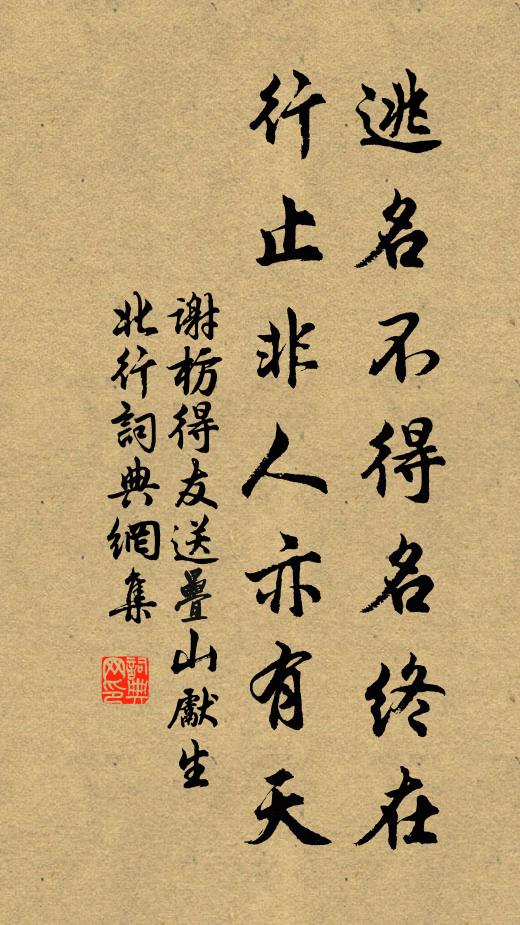 逃名不得名終在
行止非人亦有天
謝枋得友送疊山獻生
北行詞典網集
詞典网印